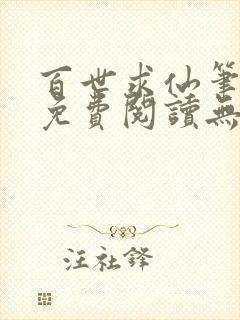 百世求仙筆
免費閱讀無
汪社鋒